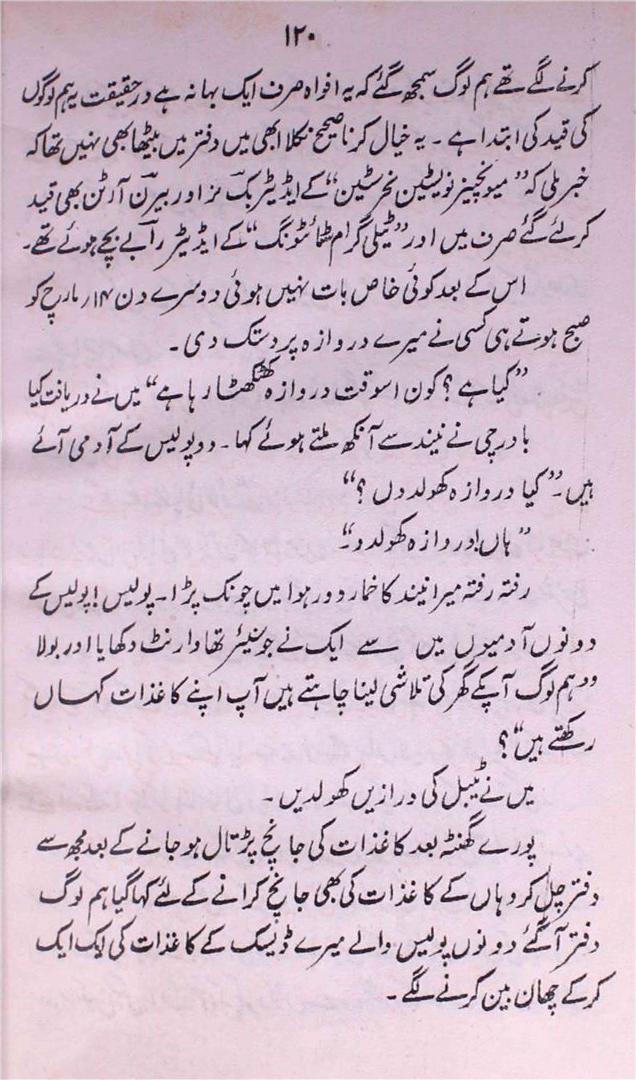 ۱۲۰
کرنے لگے تھے ہم لوگ سمجھ گئے کہ یہ افواہ صرف ایک بہانہ ہے درحقیقت یہ ہم لوگوں
کی قید کی ابتدا ہے ۔ یہ خیال کرنا صحیح نکلا ابھی میں دفتر میں بیٹھا بھی نہیں تھا کہ
خبر ملی کہ ”میونچینر نویسٹین نخرسٹین“ کے ایڈیٹر بک نز اور بیرن آرٹن بھی قید
کر لئے گئے صرف میں اور ”ٹیلی گرام ٹائٹونگ“ کے ایڈیٹر رابے بچے ہوئے تھے۔
اس کے بعد کوئی خاص بات نہیں ہوئی دوسرے دن ۱۴؍ مارچ کو
صبح ہوتے ہی کسی نے میرے دروازہ پر دستک دی ۔
”کیا ہے ؟ کون اسوقت دروازہ کھٹکھٹا رہا ہے“ میں نے دریافت کیا
باورچی نے نیند سے آنکھ ملتے ہوئے کہا۔ دو پولیس کے آدمی آئے
ہیں۔ ”کیا دروازہ کھولدوں ؟“
”ہاں! دروازہ کھولدو“۔
رفتہ رفتہ میرا نیند کا خمار دور ہوا میں چونک پڑا۔ پولیس ! پولیس کے
دونوں آدمیوں میں سے ایک نے جو سنیئر تھا وارنٹ دکھایا اور بولا
”ہم لوگ آپکے گھر کی تلاشی لینا چاہتے ہیں آپ اپنے کاغذات کہاں
رکھتے ہیں“؟
میں نے ٹیبل کی درازیں کھولدیں ۔
پورے گھنٹہ بعد کاغذات کی جانچ پڑتال ہو جانے کے بعد مجھ سے
دفتر چل کر وہاں کے کاغذات کی بھی جانچ کرانے کے لئے کہا گیا ہم لوگ
دفتر آگئے دونوں پولیس والے میرے ڈیسک کے کاغذات کی ایک ایک
کرکے چھان بین کرنے لگے ۔